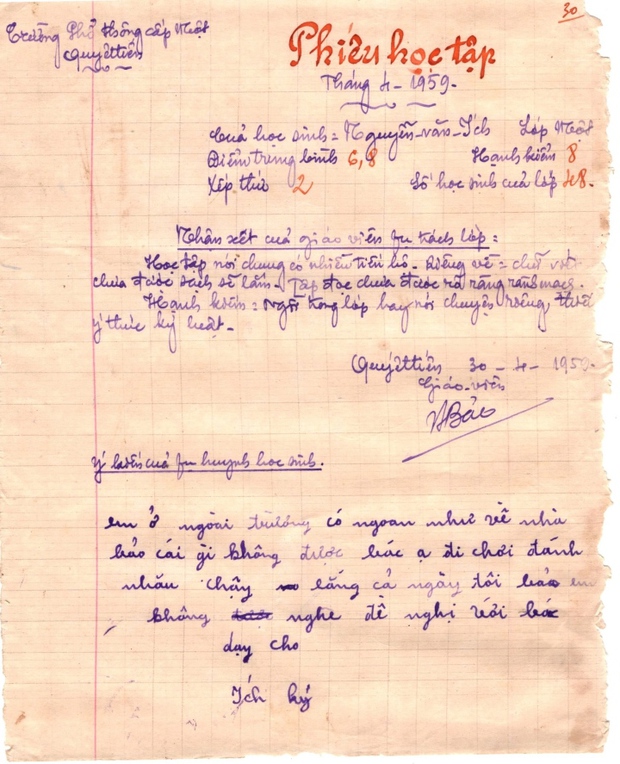 30
Trường Phổ thông cấp Một
Quyết tiến
Phiếu học tập
Tháng 4 - 1959.
Của học sinh = Nguyễn-văn-Ích Lớp Một
Điểm trung bình 6,8 Hạnh kiểm 8
Xếp thứ 2 Số học sinh của lớp 48.
Nhận xét của giáo viên fụ trách lớp =
Học tập nói chung có nhiều tiến bộ. Riêng về = chữ viết
chưa được sạch sẽ lắm. Tập đọc chưa được rõ ràng rành mạch.
Hạnh kiểm = Ngồi trong lớp hay nói chuyện riêng, thiếu
ý thức kỷ luật.
Quyết tiến 30 - 4 - 1959.
Giáo-viên
Bảo
ý kiến của fụ huynh học sinh.
em ở ngoài trường có ngoan như về nhà
bảo cái gì không được bác ạ đi chơi đánh
nhau chạy lăng cả ngày tôi bảo em
không nghe đề nghị với bác
dạy cho
Ích ký